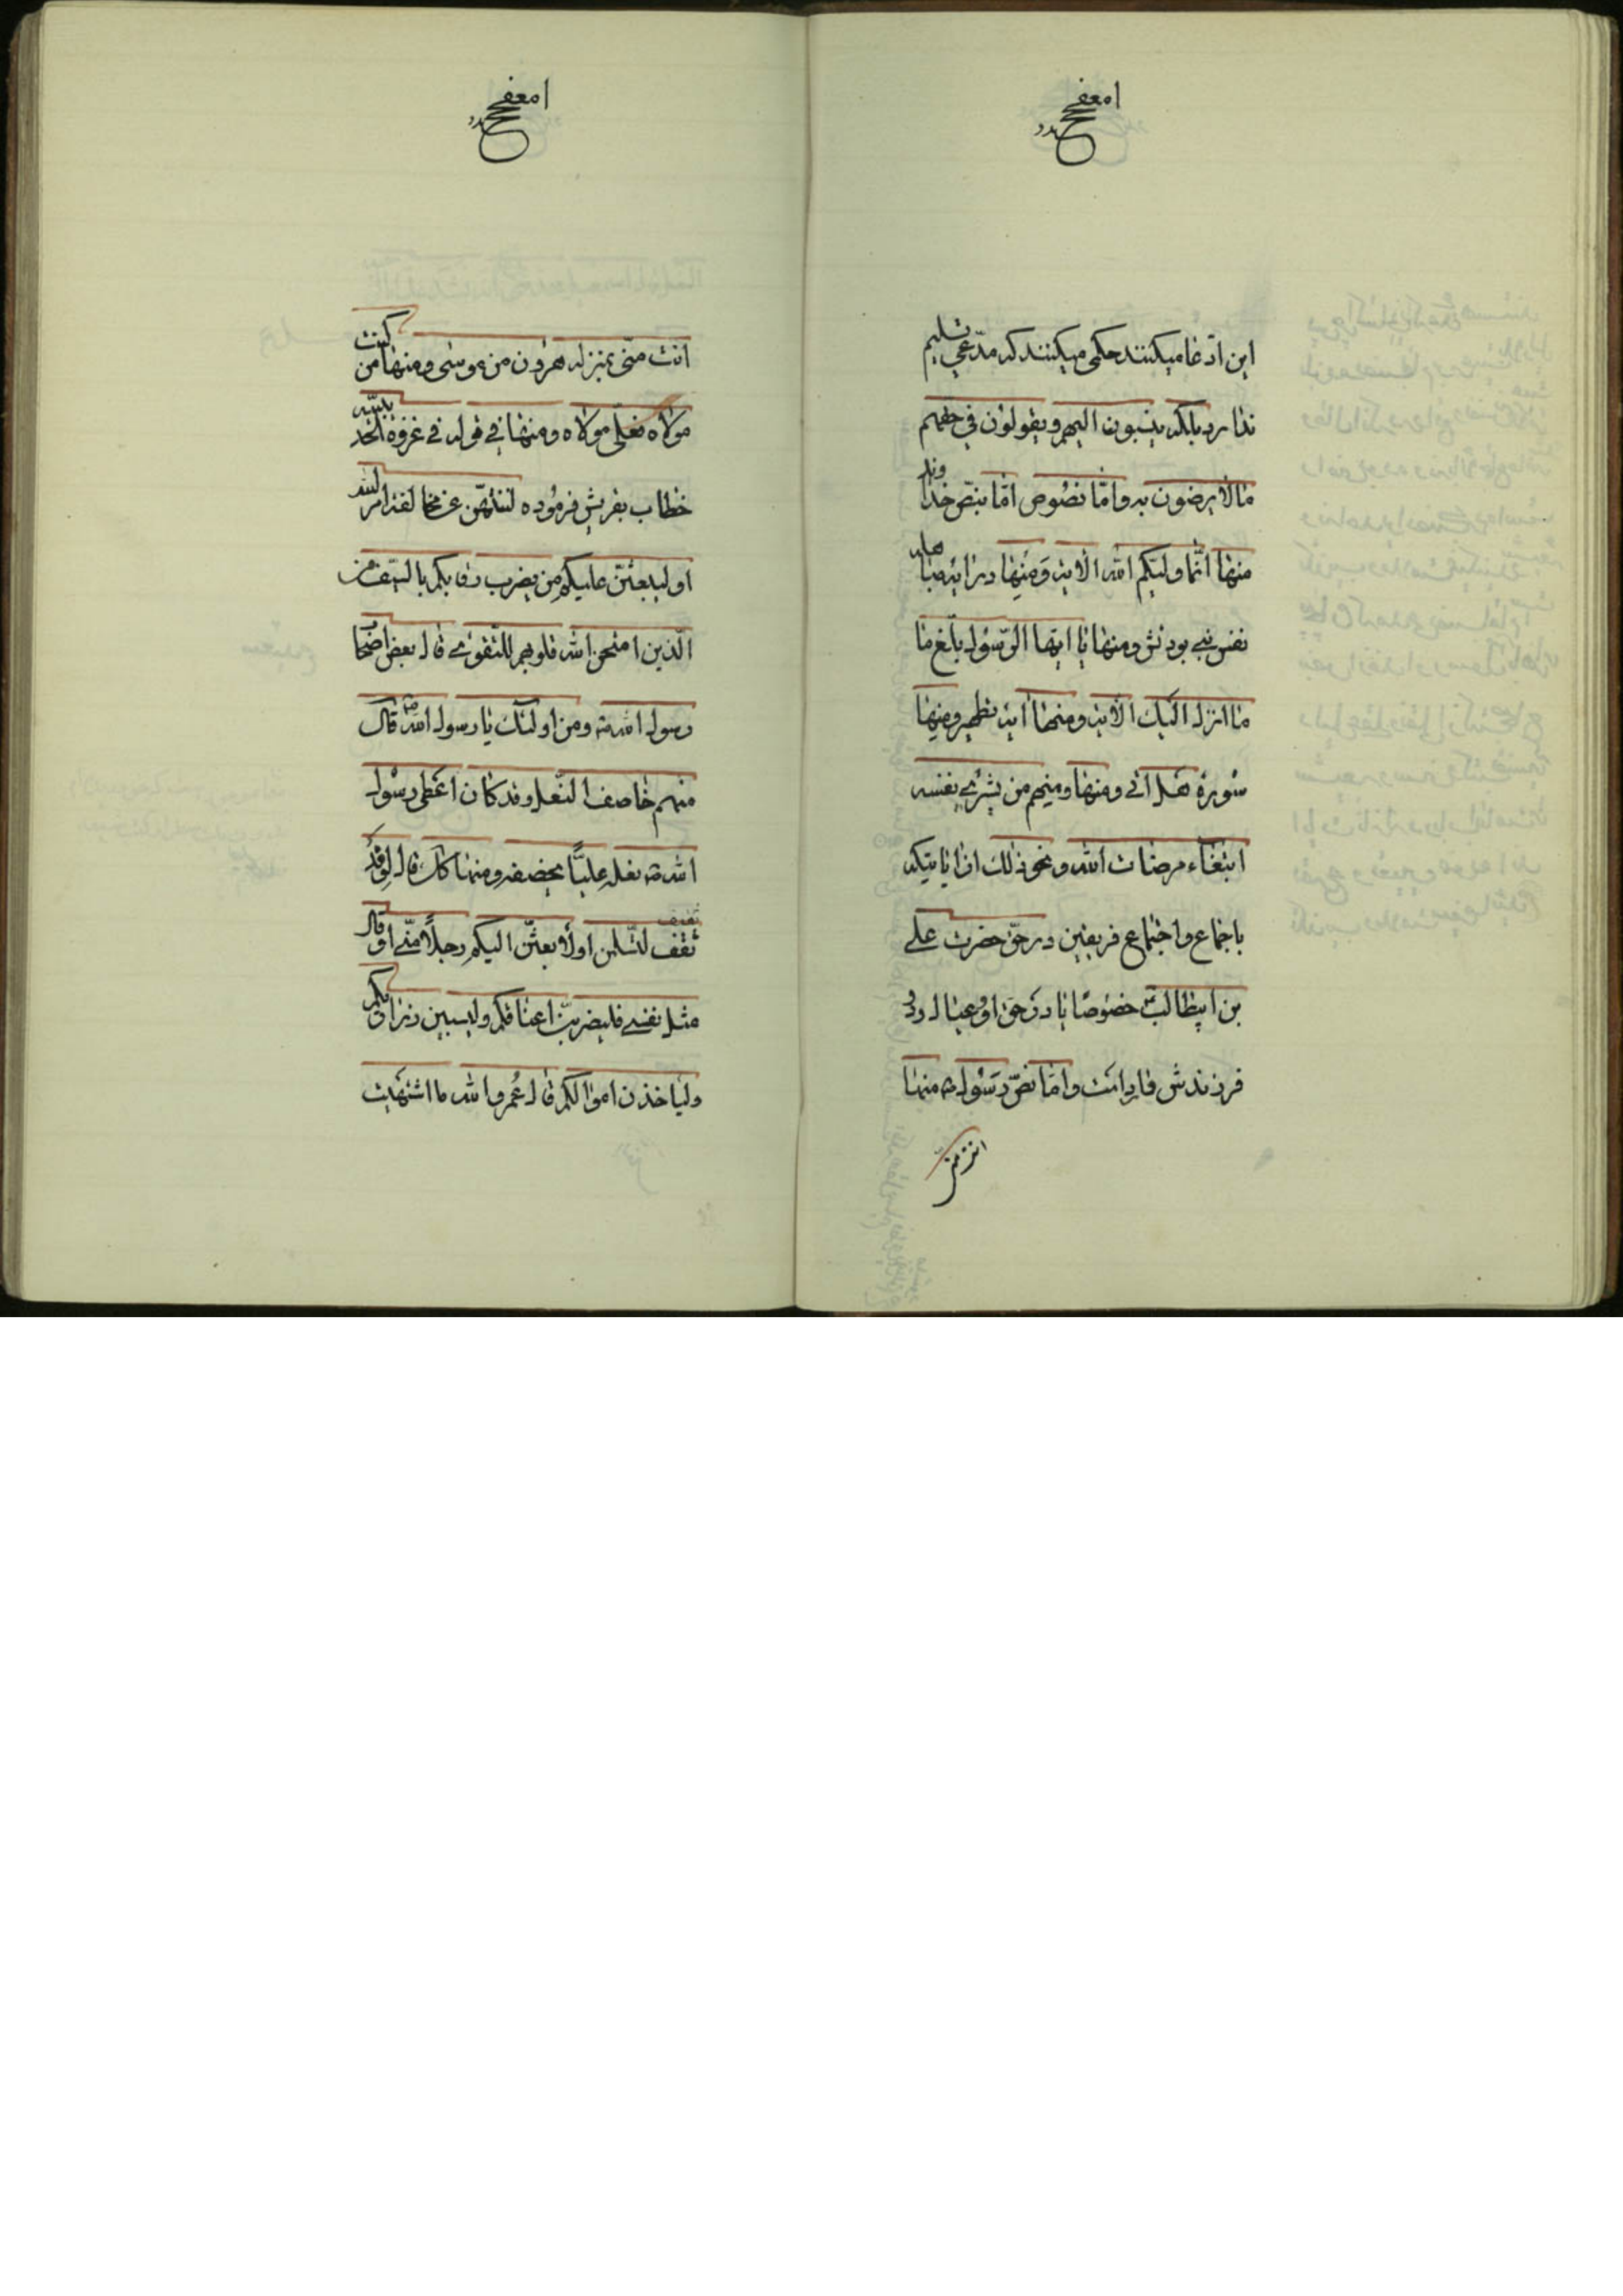 این ادّعا میکنند حکمی میکنند که مدّعی تسلیم
ندارد بلکه ینسبون الیهم و یقولون فی حقهم
ما لا یرضون به و امّا نصوص امّا بنصّ خداوند
منها انّما ولیّکم الله الایه و منها در ایه مباهله
نفس نبی بودنش و منها یا ایها الرّسول بلّغ ما
ما انزل الیک الایه و منها ایه تطهیر و منها
سورة هل اتی و منها و منهم من یشری نفسه
ابتغاء مرضات الله و نحو ذلک از ایاتیکه
باجماع و اجتماع فریقین در حقّ حضرت علی
بن ابیطالب خصوصًا یا در حق او و عیال و دو
فرزندش وارد است و امّا نصّ رسول ص منها
انت منّی
انت منّی بمنزله هرون من موسی و منها من کنت
مولاه فعلی مولاه و منها فی قوله فی غزوة الحدیبیّه
خطاب بقریش فرموده لتنتهنّ عن مخالفة امر الله
او لیبعثنّ علیکم من یضرب رقابکم بالسّیف من
الّذین امتحن الله قلوبهم للتقوی قال بعض اصحاب
رسول الله ص و من اولئک یا رسول الله ص قال
منهم خاصف النّعل و قد کان اعطی رسول
الله ص نعله علیًّا یخصفه و منها کان قال لوفد
ثقیف
ثقف لتسلمن او لأبعثنّ الیکم رجلًا منّی او قال
مثل نفسی فلیضربنّ اعناقکم و لیسبین ذراریکم
و لیاخذن اموالکم قال عُمر و الله ما اشتهیت